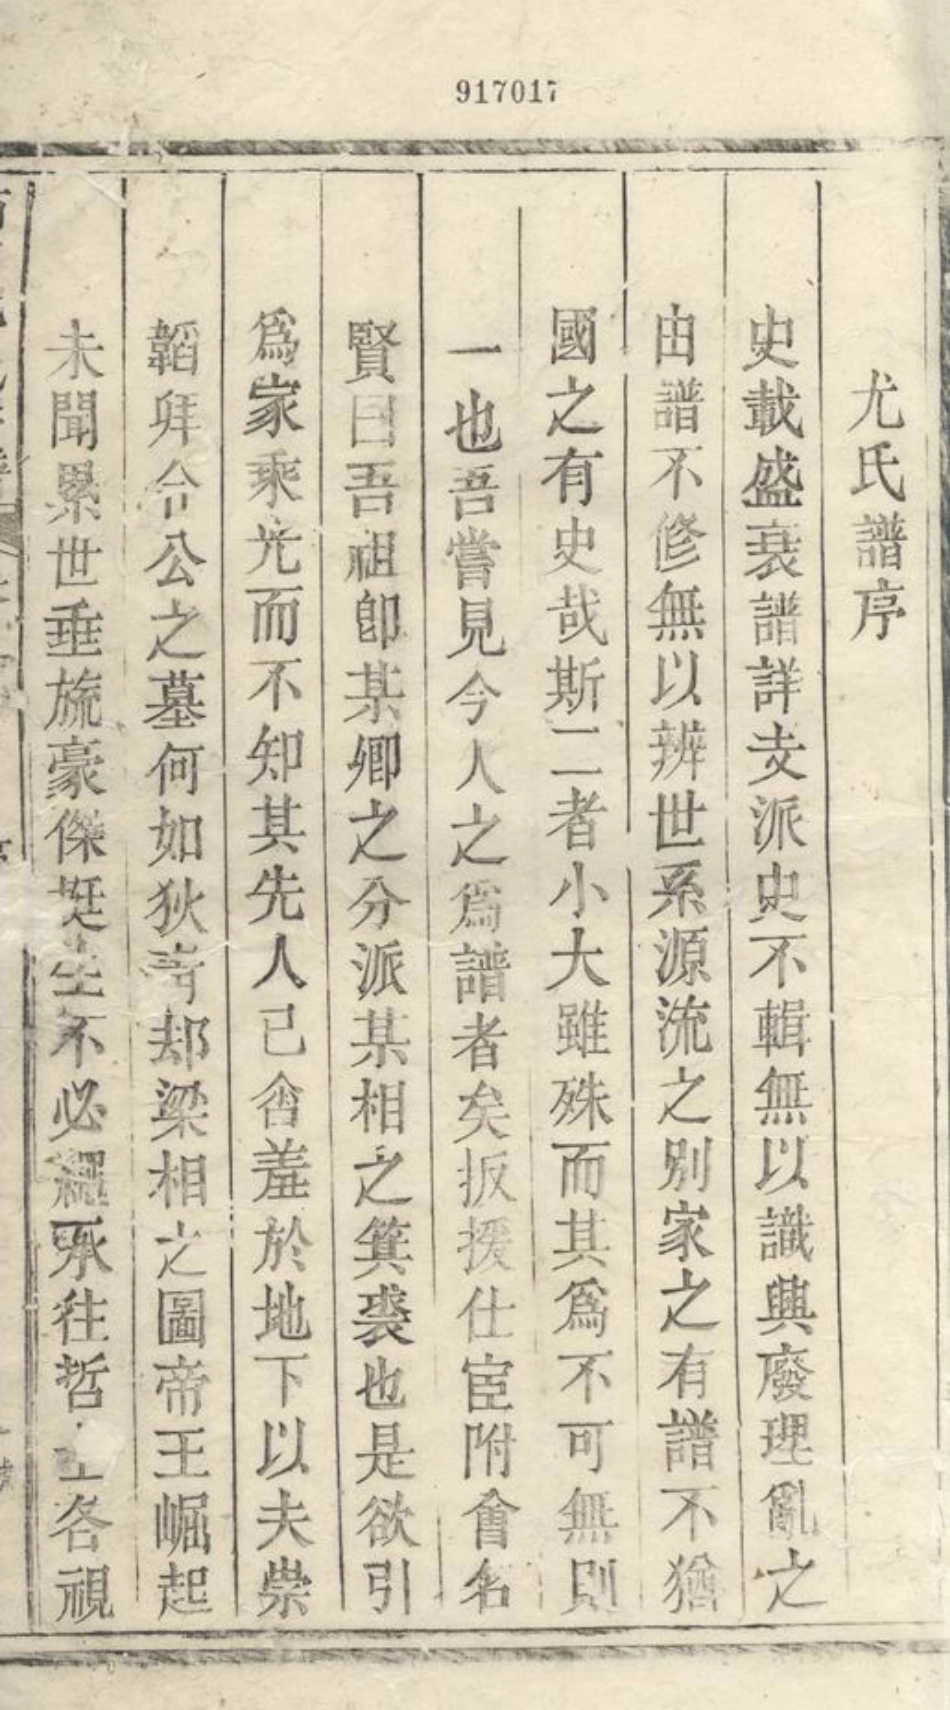 917017
尤氏譜序
史載盛衰譜詳支派史不輯無以識興廢理亂之
由譜不修無以辨世系源流之別家之有譜不猶
國之有史哉斯二者小大雖殊而其爲不可無則
一也吾嘗見今人之爲譜者矣扳援仕宦附會名
賢曰吾祖卽某卿之分派某相之箕裘也是欲引
爲家乘光而不知其先人已含羞於地下以夫崇
韜拜令公之墓何如狄青却梁相之圖帝王崛起
未聞累世垂旒豪傑挺生不必繩承往哲士各視